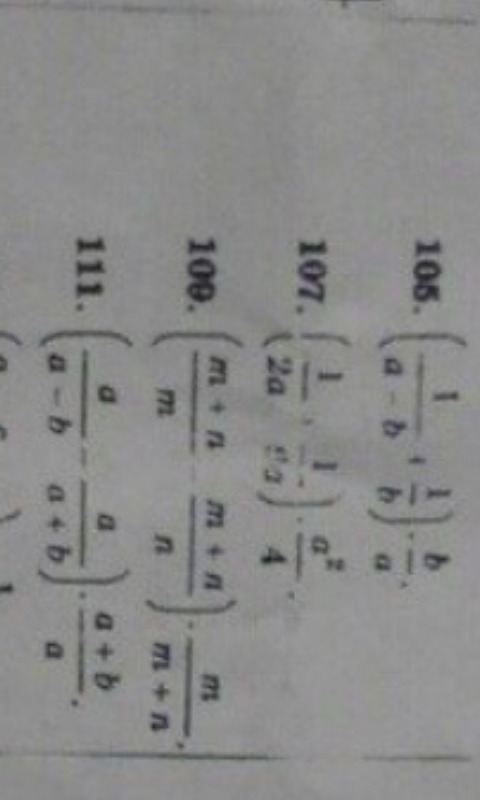 105. (1/(a - b) + 1/b) · b/a.
107. (1/2a + 1/) · a²/4.
109. ((m + n)/m (m + n)/n) · m/(m + n).
111. (a/(a - b) - a/(a + b)) · (a + b)/a.